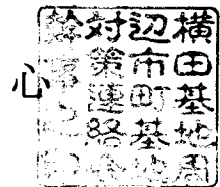 横田基地周
辺市町基地
対策連絡会
幹
心